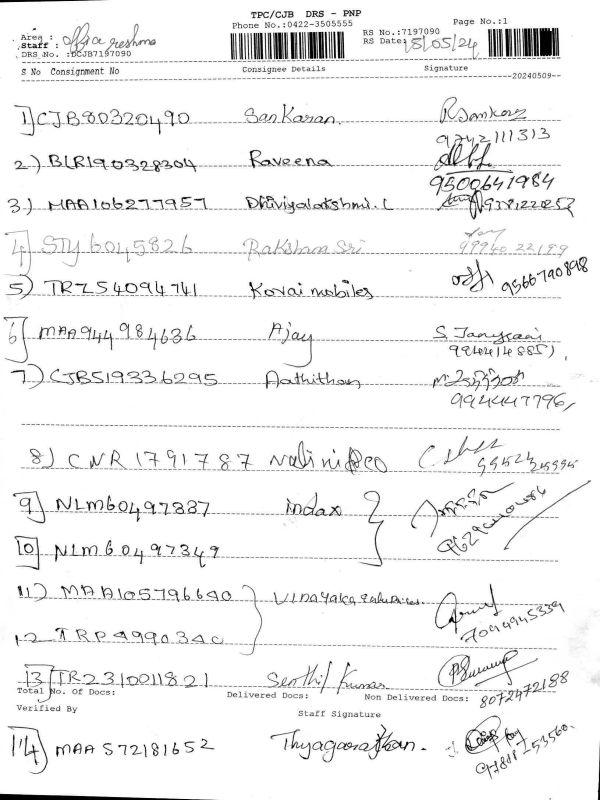 TPC/CJB DRS - PNP
Phone No.:0422-3505555
Page No.:1
Area :
Staff :
DRS No. :DCJB7197090
RS No.:7197090
RS Date: 15/05/24
S No Consignment No Consignee Details Signature
--20240509--
1] CJB80320490 Sankaran.
9742111313
2) BLR190328304 Raveena
9500641984
3) MAA106277957 Dhivyalakshmi.L
4] STY6045826 Rakshana Sri
99940 22199
5) TRZ54094741 Kovai mobiles
9566790898
6] MAA944984636 Ajay
7) CJB519336295 Aathithan
994447796
8) CNR1791787
9] NLM60497337 indax
10] NLM60497349
11) MAA105796640 Vinayaka
7094945339
12 TRP4990340
13] TR2310011821 Senthil Kumar
8072472188
Total No. of Docs: Delivered Docs: Non Delivered Docs:
Verified By
Staff Signature
14] MAA572181652 Thyagarajan.